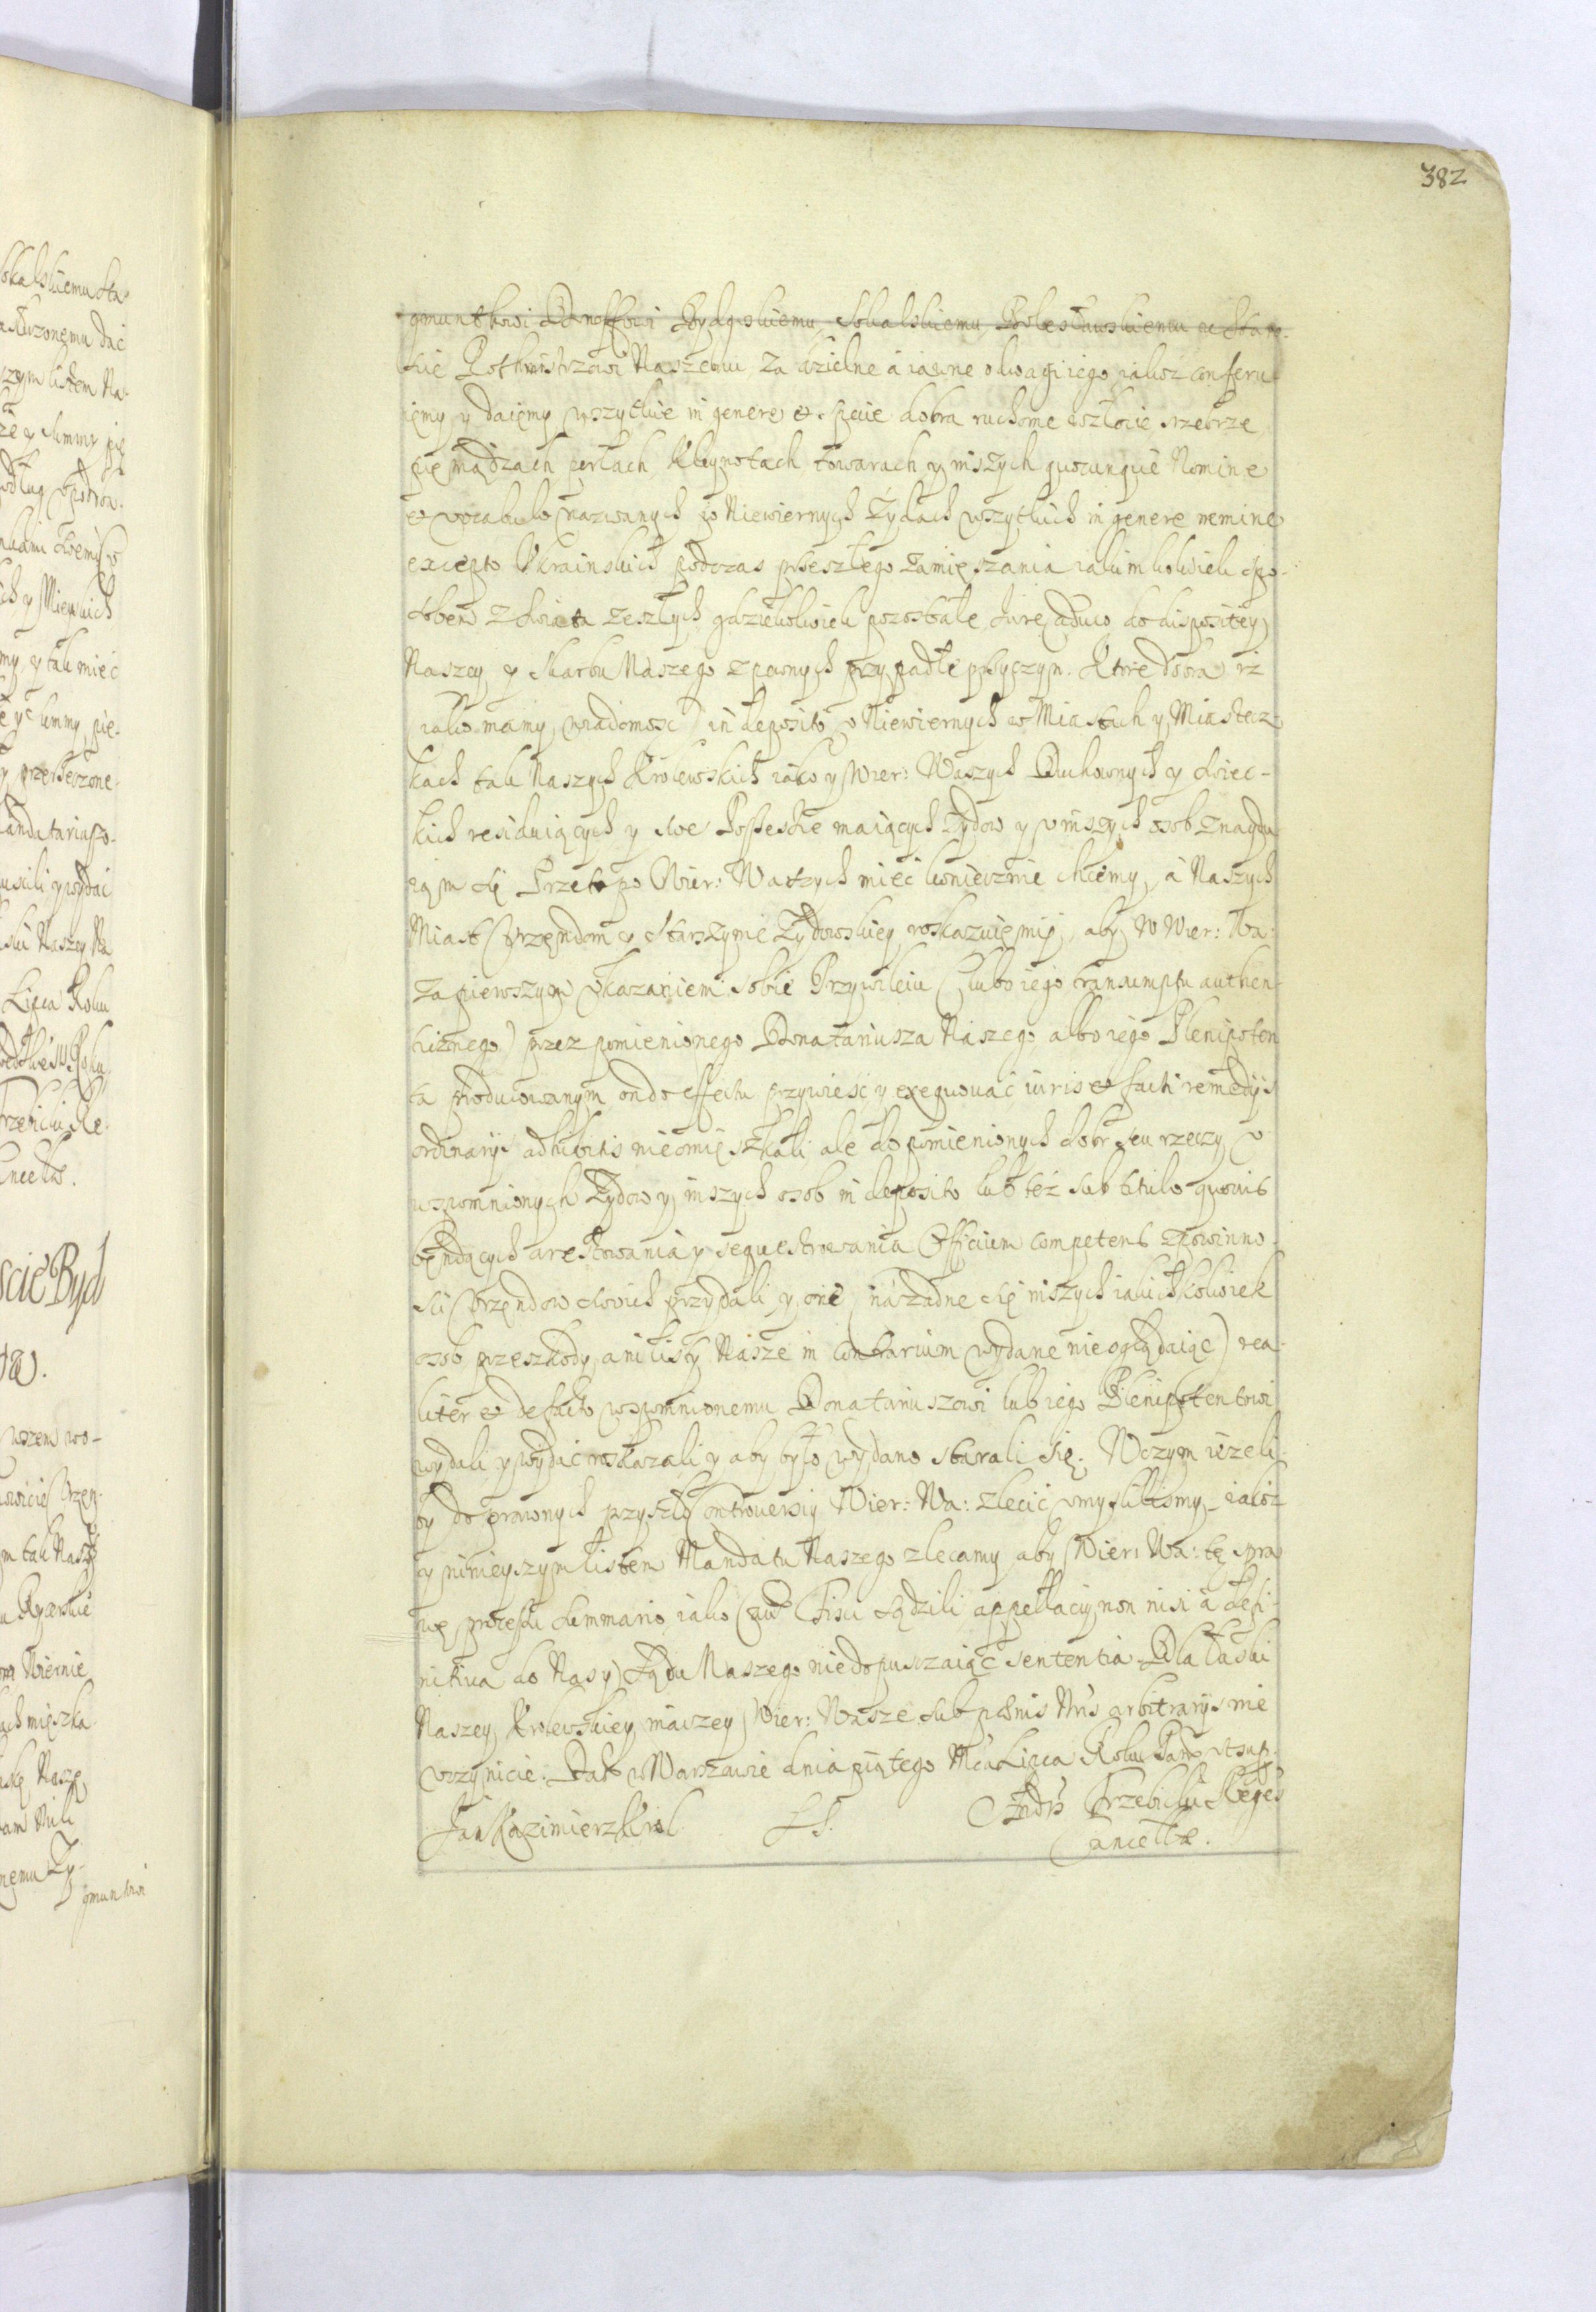 382
gmuntkowi Denoffowi Bydgoskiemu, Sokalskiemu, Bolesławskiemu etc Staro-
scie Rothmistrzowi Naszemu za dzielne a iawne odwagi iego iakosz conferu-
iemy y daiemy wszytkie in genere et specie dobra ruchome w złocie srzebrze
pieniądzach perłach kleynotach towarach y inszych quocunque Nomine
et vocabulo nazwanych po Niewiernych Zydach wszytkich in genere nemine
excepto Ukrainskich podczas przeszłego zamięszania iakimkolwiek spo-
sobem z swiata zeszłych gdziekolwiek pozostałe Jure caduco do dispositiey
Naszey y skarbu Naszego z pewnych przypadłe przyczyn. Ktore dobra iz
iako mamy wiadomosc in deposito v Niewiernych w Miastach y Miastecz
kach tak Naszych Krolewskich iako y Wier: Waszych Duchownych y swiec-
kich residuiących y swe Possessie maiących Zydow y v inszych osob znaydu
ią się Przeto po Wier: Waszych mieć koniecznie chcemy, a Naszych
Miast Vrzendom y Starszynie Zydowskiey roskazuiemy, aby W Wier: Wa:
za pierwszym okazaniem sobie Przywileiu (lubo iego transumptu authen
ticznego) przez pomienionego Donatariusza Naszego albo iego Plenipoten
ta producowanym on do effectu przywiesc y exequować iuris et facti remedijs
ordinarijs adhibitis nieomięszkali, ale do pomienionych dobr seu rzeczy v
wspomnionych Zydow y inszych osob in deposito lub tez sub titulo quovis
będących arestowania y sequestrowania Officium competens z powinno
sci Vrzendow swoich przydali, y one (na zadne się inszych iakichkolwiek
osob przeszkody, ani listy Nasze in contrarium wydane nieoglądaiąc) rea-
liter et de facto wspomnionemu Donatariuszowi lub iego Plenipotentowi
wydali y wydać roskazali y aby było wydano starali się. W czym iezeli
by do prawnych przyszło Controversiy Wier: Wa: zlecić vmyslilismy iakosz
y ninieyszym listem Mandatu Naszego zlecamy aby Wier: Wa: tę spra
wę processu summario, iako Causa Fisci sądzili appellacij non nisi a defi-
nitiva do Nas y Sądu Naszego niedopuszczaiąc sententia. Dla łaski
Naszey Krolewskiey inaczey Wier: Wasze sub poenis Nris arbitrarijs nie
vczynicie. Dat w Warszawie dnia piątego Mca Lipca Roku Pan. vt sup.
Jan Kazimierz Krol. LS. Andrs Trzebicki Reges
Cancellae.